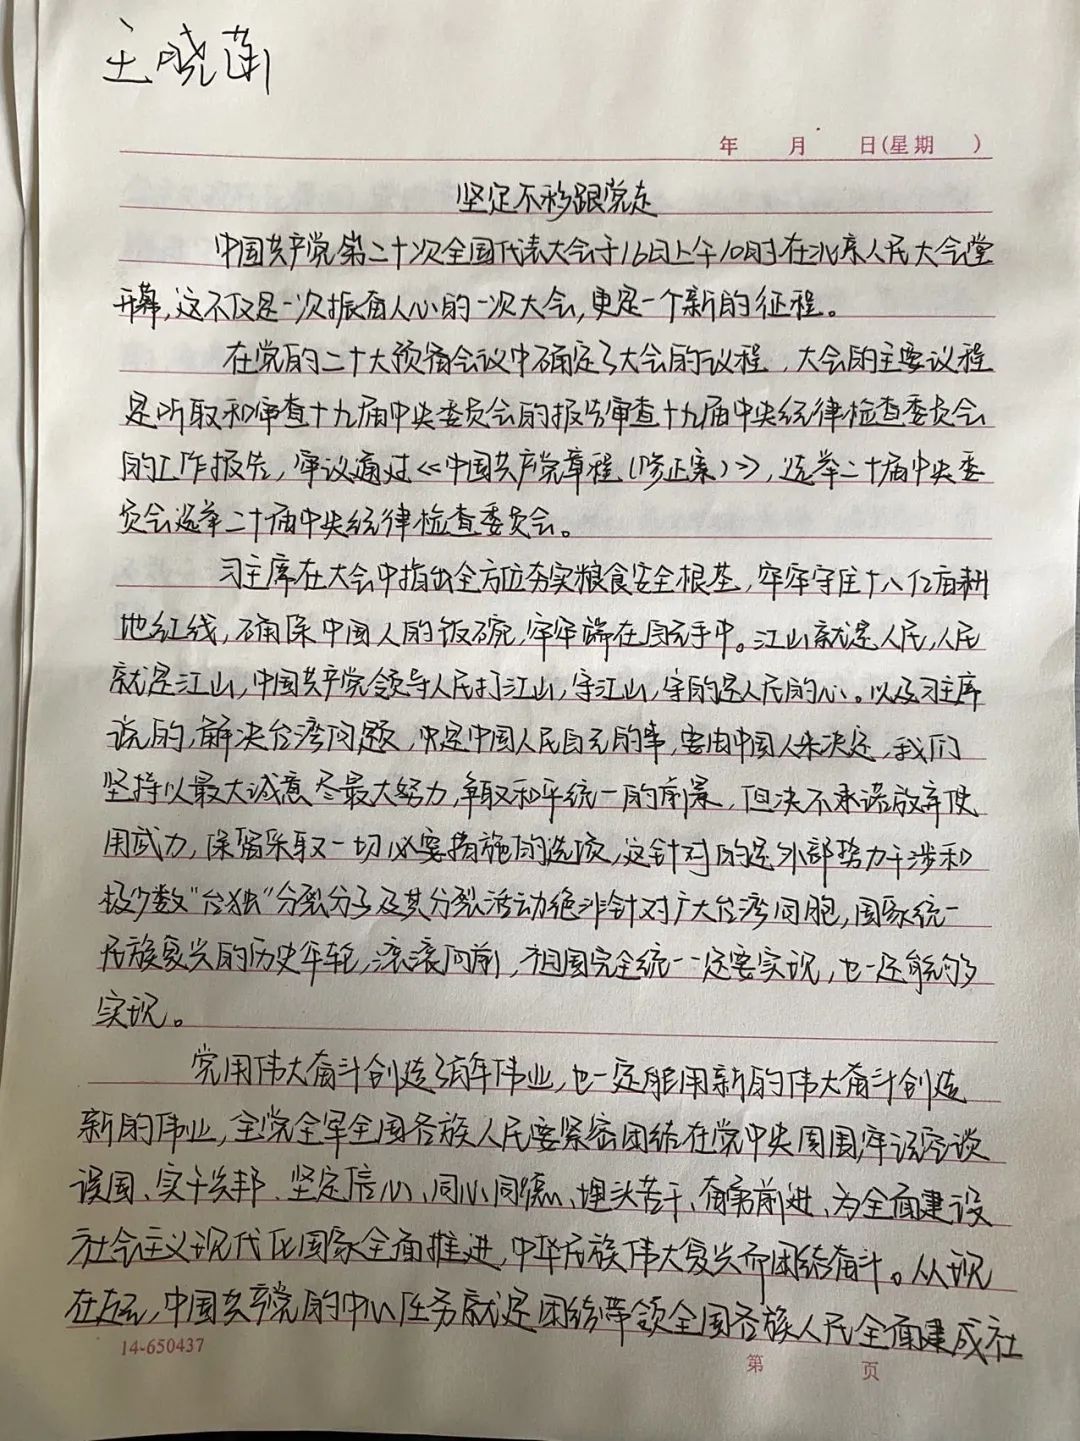 王晓菌
年 月 日(星期 )
坚定不移跟党走
中国共产党第二十次全国代表大会于16日上午10时在北京人民大会堂
开幕,这不仅是一次振奋人心的一次大会,更是一个新的征程。
在党的二十大预备会议中确定了大会的议程,大会的主要议程
是听取和审查十九届中央委员会的报告审查十九届中央纪律检查委员会
的工作报告,审议通过《中国共产党章程(修正案)》,选举二十届中央委
员会选举二十届中央纪律检查委员会。
习主席在大会中指出全方位夯实粮食安全根基,牢牢守住十八亿亩耕
地红线,确保中国人的饭碗,牢牢端在自己手中。江山就是人民,人民
就是江山,中国共产党领导人民打江山,守江山,守的是人民的心。以及习主席
说的,解决台湾问题,中是中国人民自己的事,要由中国人来决定,我们
坚持以最大诚意尽最大努力,争取和平统一的前景,但决不承诺放弃使
用武力,保留采取一切必要措施的选项,这针对的是外部势力干涉和
极少数"台独"分裂分子及其分裂活动绝非针对广大台湾同胞,国家统一
民族复兴的历史车轮,滚滚向前,祖国完全统一一定要实现,也一定能够
实现。
党用伟大奋斗创造了百年伟业,也一定能用新的伟大奋斗创造
新的伟业,全党全军全国各族人民要紧密团结在党中央周围,牢记空谈
误国、实干兴邦、坚定信心、同心同德、埋头苦干、奋勇前进、为全面建设
社会主义现代化国家全面推进,中华民族伟大复兴而团结奋斗。从现
在起,中国共产党的中心任务就是团结带领全国各族人民全面建成社
14-650437
第 页